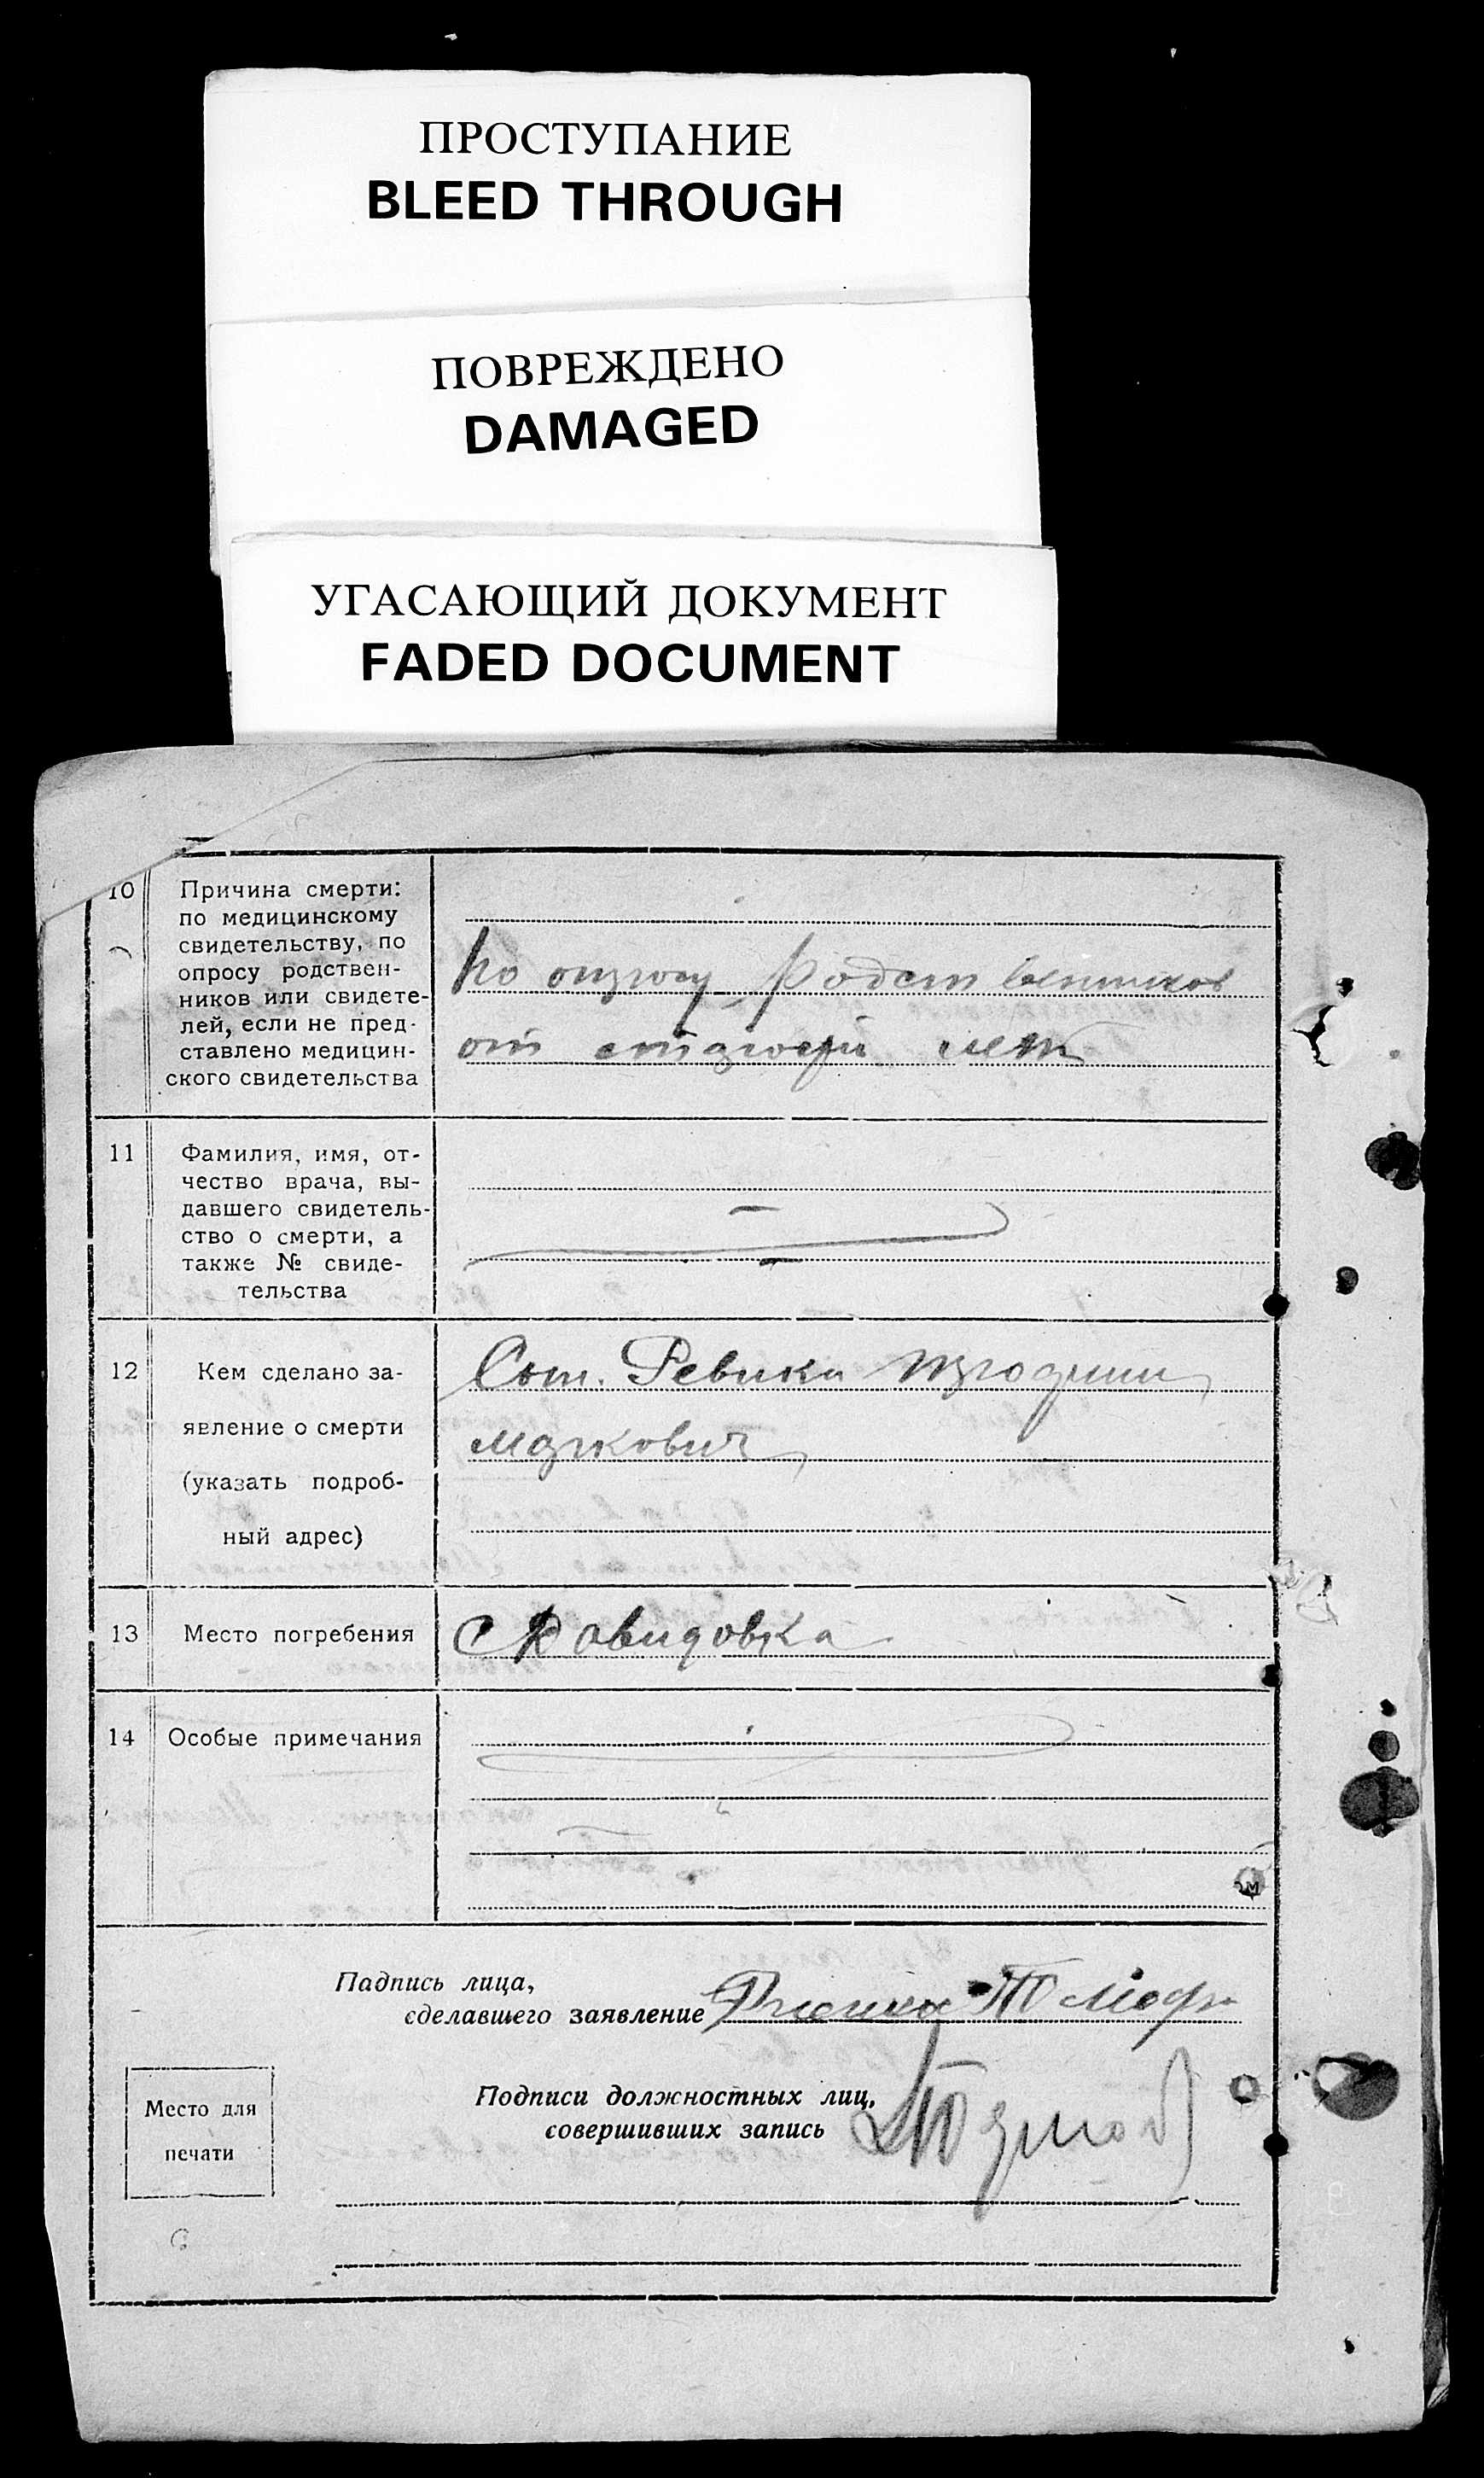 ПРОСТУПАНИЕ
BLEED THROUGH
ПОВРЕЖДЕНО
DAMAGED
УГАСАЮЩИЙ ДОКУМЕНТ
FADED DOCUMENT
10
Причина смерти:
по медицинскому
свидетельству, по
опросу родствен-
ников или свидете-
лей, если не пред-
ставлено медицин-
ского свидетельства
По опросу Родственников
от старости лет
11
Фамилия, имя, от-
чество врача, вы-
давшего свидетель-
ство о смерти, а
также № свиде-
тельства
12
Кем сделано за-
явление о смерти
(указать подроб-
ный адрес)
13
Место погребения
С Давидовка
14
Особые примечания
Падпись лица,
сделавшего заявление
Подписи должностных лиц,
совершивших запись
Место для
печати